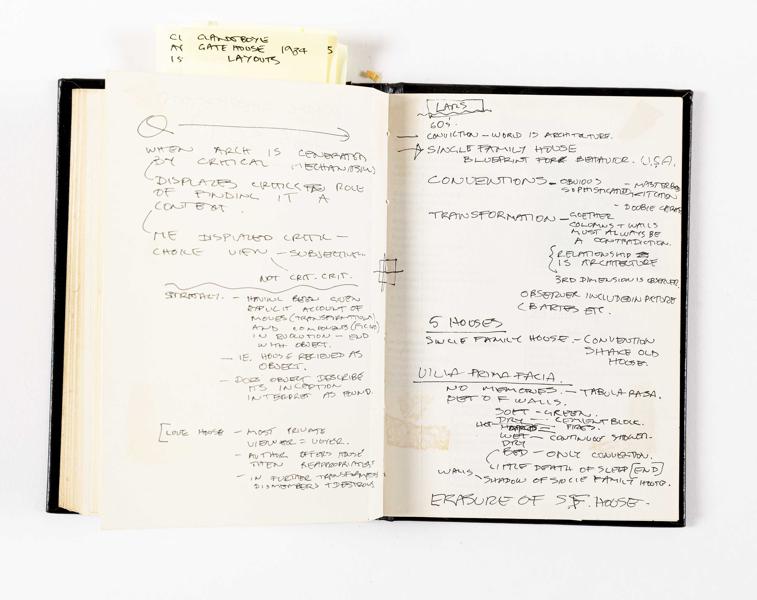 CLANDEBOYE
GATE HOUSE 1984 5
LAYOUTS
Q
WHEN ARCH IS GENERATED
BY CRITICAL MECHANISM
DISPLACES CRITICS ROLE
OF FINDING IT A
CONTEXT.
ME DISPLACED CRITIC –
CHOICE VIEW – SUBJECTIVE
NOT CRIT. CRIT.
STRATEGY. – HAVING BEEN GIVEN
EXPLICIT ACCOUNT OF
MOVES (TRANSFORMATION)
AND COMPONENTS
IN EVOLUTION – END
WITH OBJECT.
– IE. HOUSE REVIEWED AS
OBJECT.
– DOES OBJECT DESCRIBE
ITS INCEPTION
INTERPRET AS FOUND.
[LOVE HOUSE – MOST PRIVATE
VIEWER = VOYER.
– AUTHOR OFFERS HOUSE
THEN REAPPROPRIATES
– IN FURTHER TRANSFORMS
DISMEMBERS + DESTROYS
LARS
60s.
CONVICTION – WORLD IS ARCHITECTURE.
SINGLE FAMILY HOUSE
BLUEPRINT FOR BEHAVIOR. U.S.A.
CONVENTIONS – OBVIOUS – MASTER BED
SOPHISTICATED KITCHEN
– DOUBLE GARAGE
TRANSFORMATION – GOETHER
COLUMNS + WALLS
MUST ALWAYS BE
A CONTRADICTION.
{RELATIONSHIP
IS ARCHITECTURE
3RD DIMENSION IS OBSERVER.
OBSERVER INCLUDED IN PICTURE
ETC.
5 HOUSES
SINGLE FAMILY HOUSE. – CONVENTION
SHAKE OLD
HOUSE.
VILLA PRIMA FACIA.
NO MEMORIES. – TABULA RASA.
SET OF WALLS.
SOFT – GREEN.
DRY – CEMENT BLOCK.
HOT FIRES.
WET – CONTINUOUS
DRY
(BED – ONLY CONVENTION.
LITTLE DEATH OF SLEEP [END]
WALLS SHADOW OF SINGLE FAMILY HOUSE.
ERASURE OF S.F. HOUSE.